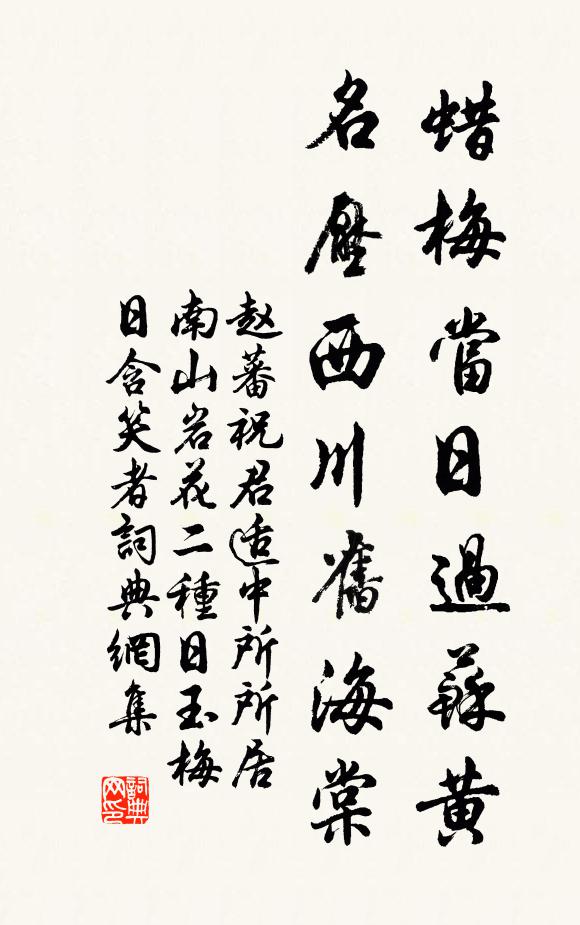 蜡梅當日過蘇黃
名壓西川舊海棠
赵蕃祝君适中所所居
南山岩花二種日玉梅
日含笑者詞典網集
詞典
网印